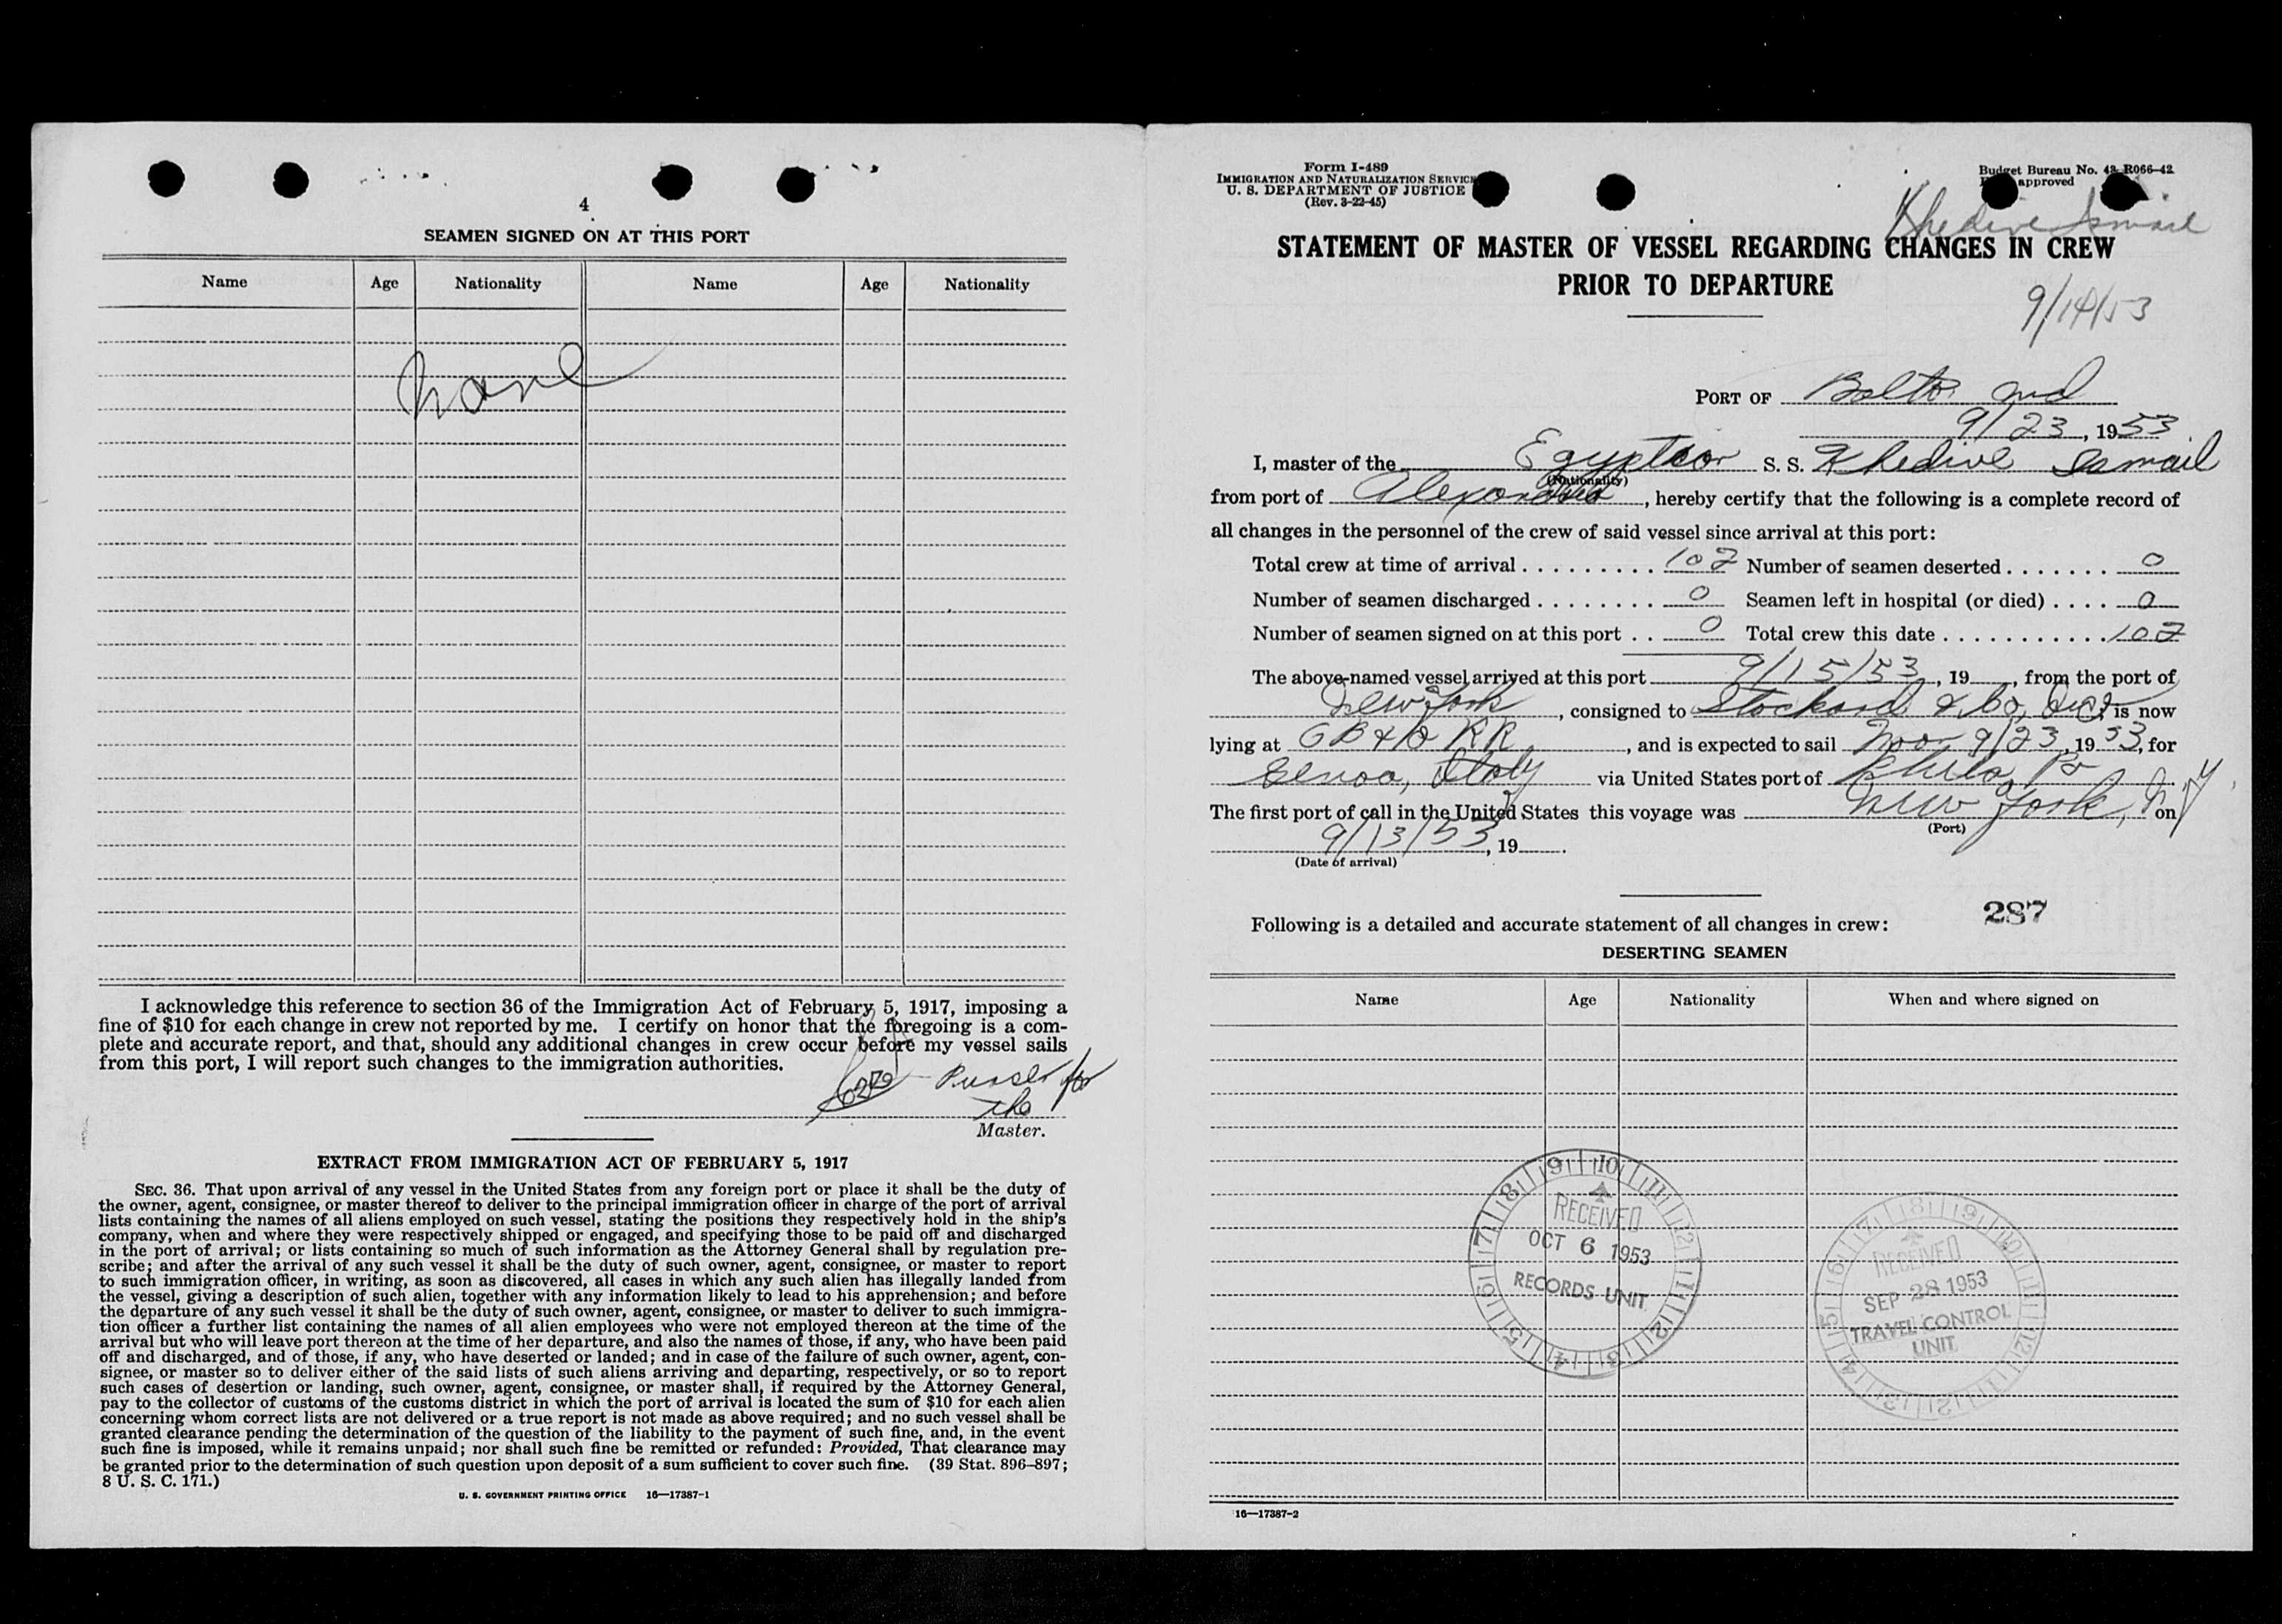 4
SEAMEN SIGNED ON AT THIS PORT
Name Age Nationality Name Age Nationality
None
I acknowledge this reference to section 36 of the Immigration Act of February 5, 1917, imposing a
fine of $10 for each change in crew not reported by me. I certify on honor that the foregoing is a com-
plete and accurate report, and that, should any additional changes in crew occur before my vessel sails
from this port, I will report such changes to the immigration authorities.
Purser for
the
Master.
EXTRACT FROM IMMIGRATION ACT OF FEBRUARY 5, 1917
SEC. 36. That upon arrival of any vessel in the United States from any foreign port or place it shall be the duty of
the owner, agent, consignee, or master thereof to deliver to the principal immigration officer in charge of the port of arrival
lists containing the names of all aliens employed on such vessel, stating the positions they respectively hold in the ship's
company, when and where they were respectively shipped or engaged, and specifying those to be paid off and discharged
in the port of arrival; or lists containing so much of such information as the Attorney General shall by regulation pre-
scribe; and after the arrival of any such vessel it shall be the duty of such owner, agent, consignee, or master to report
to such immigration officer, in writing, as soon as discovered, all cases in which any such alien has illegally landed from
the vessel, giving a description of such alien, together with any information likely to lead to his apprehension; and before
the departure of any such vessel it shall be the duty of such owner, agent, consignee, or master to deliver to such immigra-
tion officer a further list containing the names of all alien employees who were not employed thereon at the time of the
arrival but who will leave port thereon at the time of her departure, and also the names of those, if any, who have been paid
off and discharged, and of those, if any, who have deserted or landed; and in case of the failure of such owner, agent, con-
signee, or master so to deliver either of the said lists of such aliens arriving and departing, respectively, or so to report
such cases of desertion or landing, such owner, agent, consignee, or master shall, if required by the Attorney General,
pay to the collector of customs of the customs district in which the port of arrival is located the sum of $10 for each alien
concerning whom correct lists are not delivered or a true report is not made as above required; and no such vessel shall be
granted clearance pending the determination of the question of the liability to the payment of such fine, and, in the event
such fine is imposed, while it remains unpaid; nor shall such fine be remitted or refunded: Provided, That clearance may
be granted prior to the determination of such question upon deposit of a sum sufficient to cover such fine. (39 Stat. 896–897;
8 U. S. C. 171.)
U. S. GOVERNMENT PRINTING OFFICE 16—17387-1
Form I-489
IMMIGRATION AND NATURALIZATION SERVICE
U. S. DEPARTMENT OF JUSTICE
(Rev. 3-22-45)
Budget Bureau No. 43-R066-42
approved
Khedive Ismail
STATEMENT OF MASTER OF VESSEL REGARDING CHANGES IN CREW
PRIOR TO DEPARTURE
9/14/53
PORT OF Balto Md
9/23, 1953
I, master of the Egyptian S. S. Khedive Ismail
(Nationality)
from port of Alexandria, hereby certify that the following is a complete record of
all changes in the personnel of the crew of said vessel since arrival at this port:
Total crew at time of arrival 102 Number of seamen deserted 0
Number of seamen discharged 0 Seamen left in hospital (or died) 0
Number of seamen signed on at this port 0 Total crew this date 102
The above-named vessel arrived at this port 9/15/53, 19, from the port of
New York, consigned to Stockard & Co, Inc, is now
lying at B & O RR, and is expected to sail Noon 9/23, 1953, for
Genoa, Italy via United States port of Phila, Pa
The first port of call in the United States this voyage was New York, N Y on
(Port)
9/13/53, 19
(Date of arrival)
287
Following is a detailed and accurate statement of all changes in crew:
DESERTING SEAMEN
Name Age Nationality When and where signed on
RECEIVED
OCT 6 1953
RECORDS UNIT
RECEIVED
SEP 28 1953
TRAVEL CONTROL
UNIT
16—17387-2